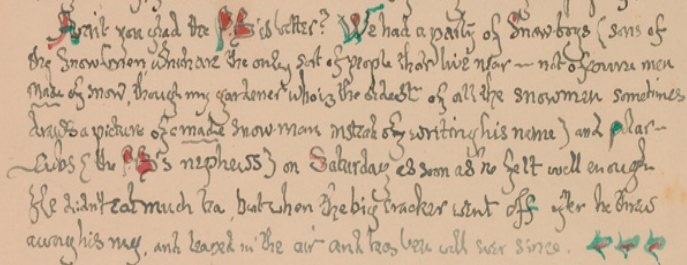 Aren't you glad the P.B. is better? We had a party of Snowboys (sons of
the Snowmen, which are the only sort of people that live near — not of course men
made of snow, though my gardener who is the oldest of all the snowmen sometimes
draws a picture of a made Snow-man instead of writing his name) and Polar-
cubs (the P.B.'s nephews) on Saturday as soon as he felt well enough.
He didn't eat much tea, but when the big cracker went off after he threw
away his rug, and leaped in the air and has been well ever since.